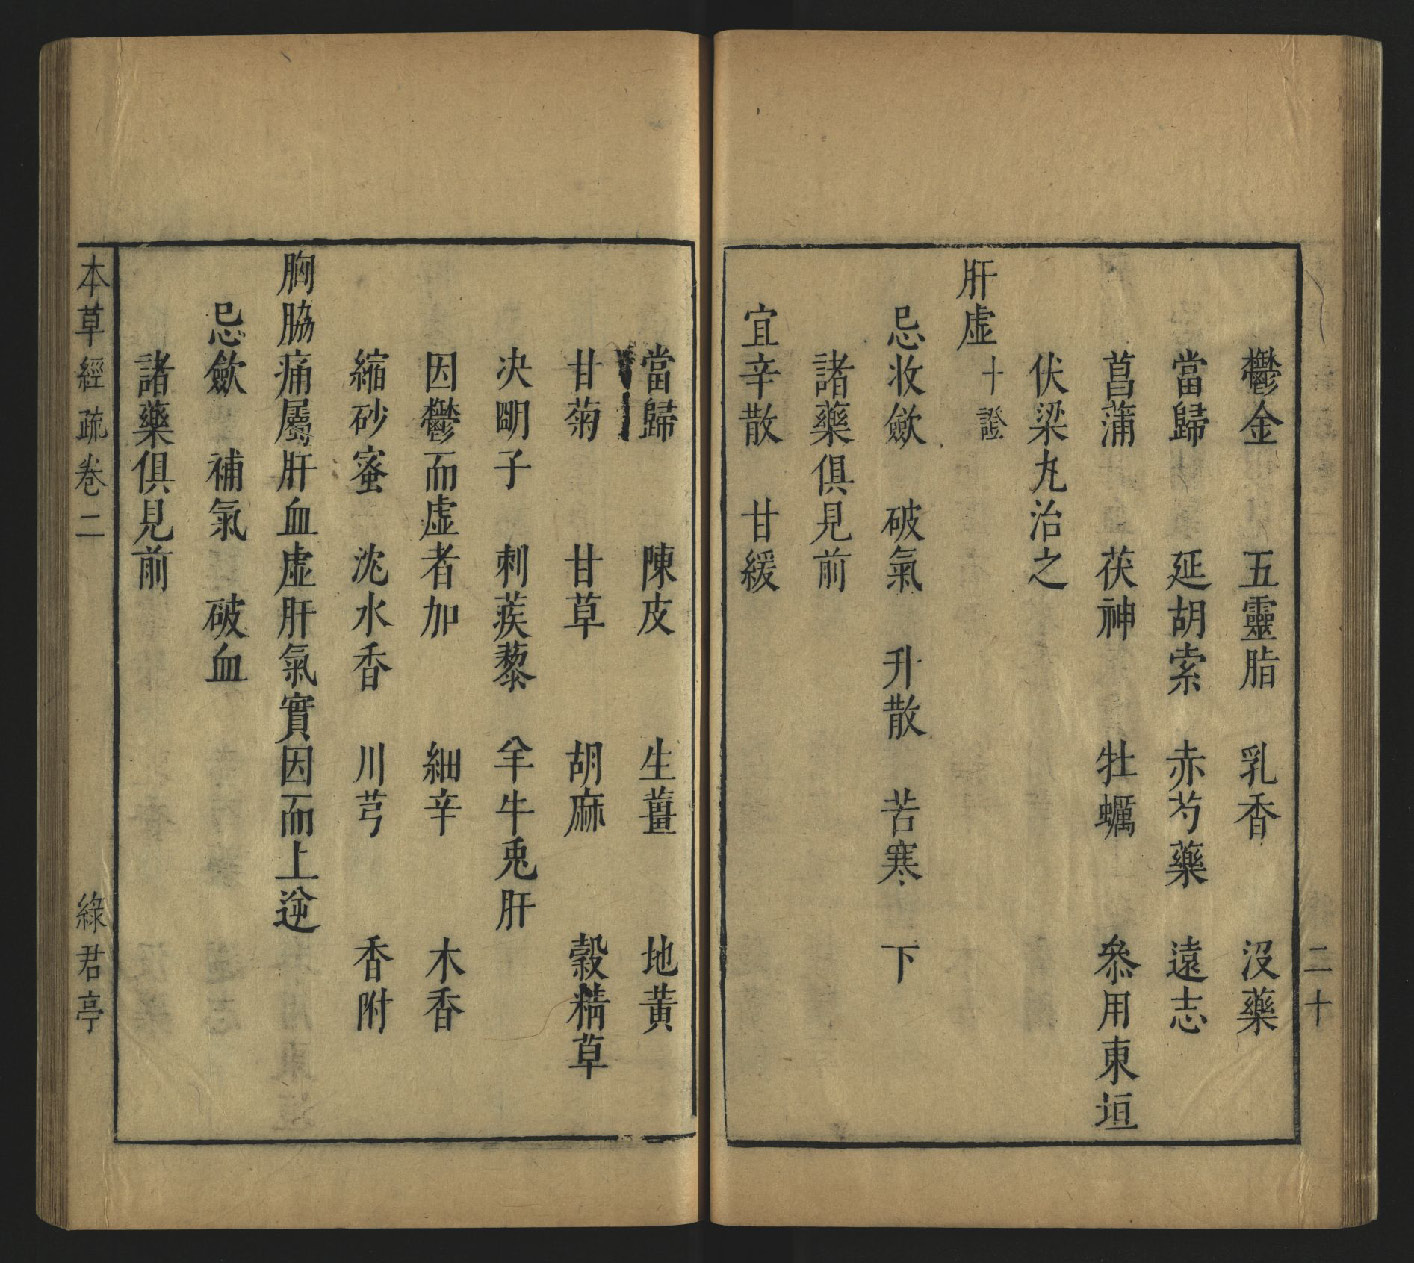 二十
鬱金　五靈脂　乳香　沒藥
當歸　延胡索　赤芍藥　遠志
菖蒲　茯神　牡蠣　叅用東垣
伏梁丸治之
肝虛十證
忌收歛　破氣　升散　苦寒　下
諸藥俱見前
宜辛散　甘緩
當歸　陳皮　生薑　地黃
甘菊　甘草　胡麻　穀精草
决明子　刺蒺藜　羊牛兎肝
因鬱而虛者加　細辛　木香
縮砂蜜　沈水香　川芎　香附
胸脇痛屬肝血虛肝氣實因而上逆
忌歛　補氣　破血
諸藥俱見前
本草經疏卷二　綠君亭